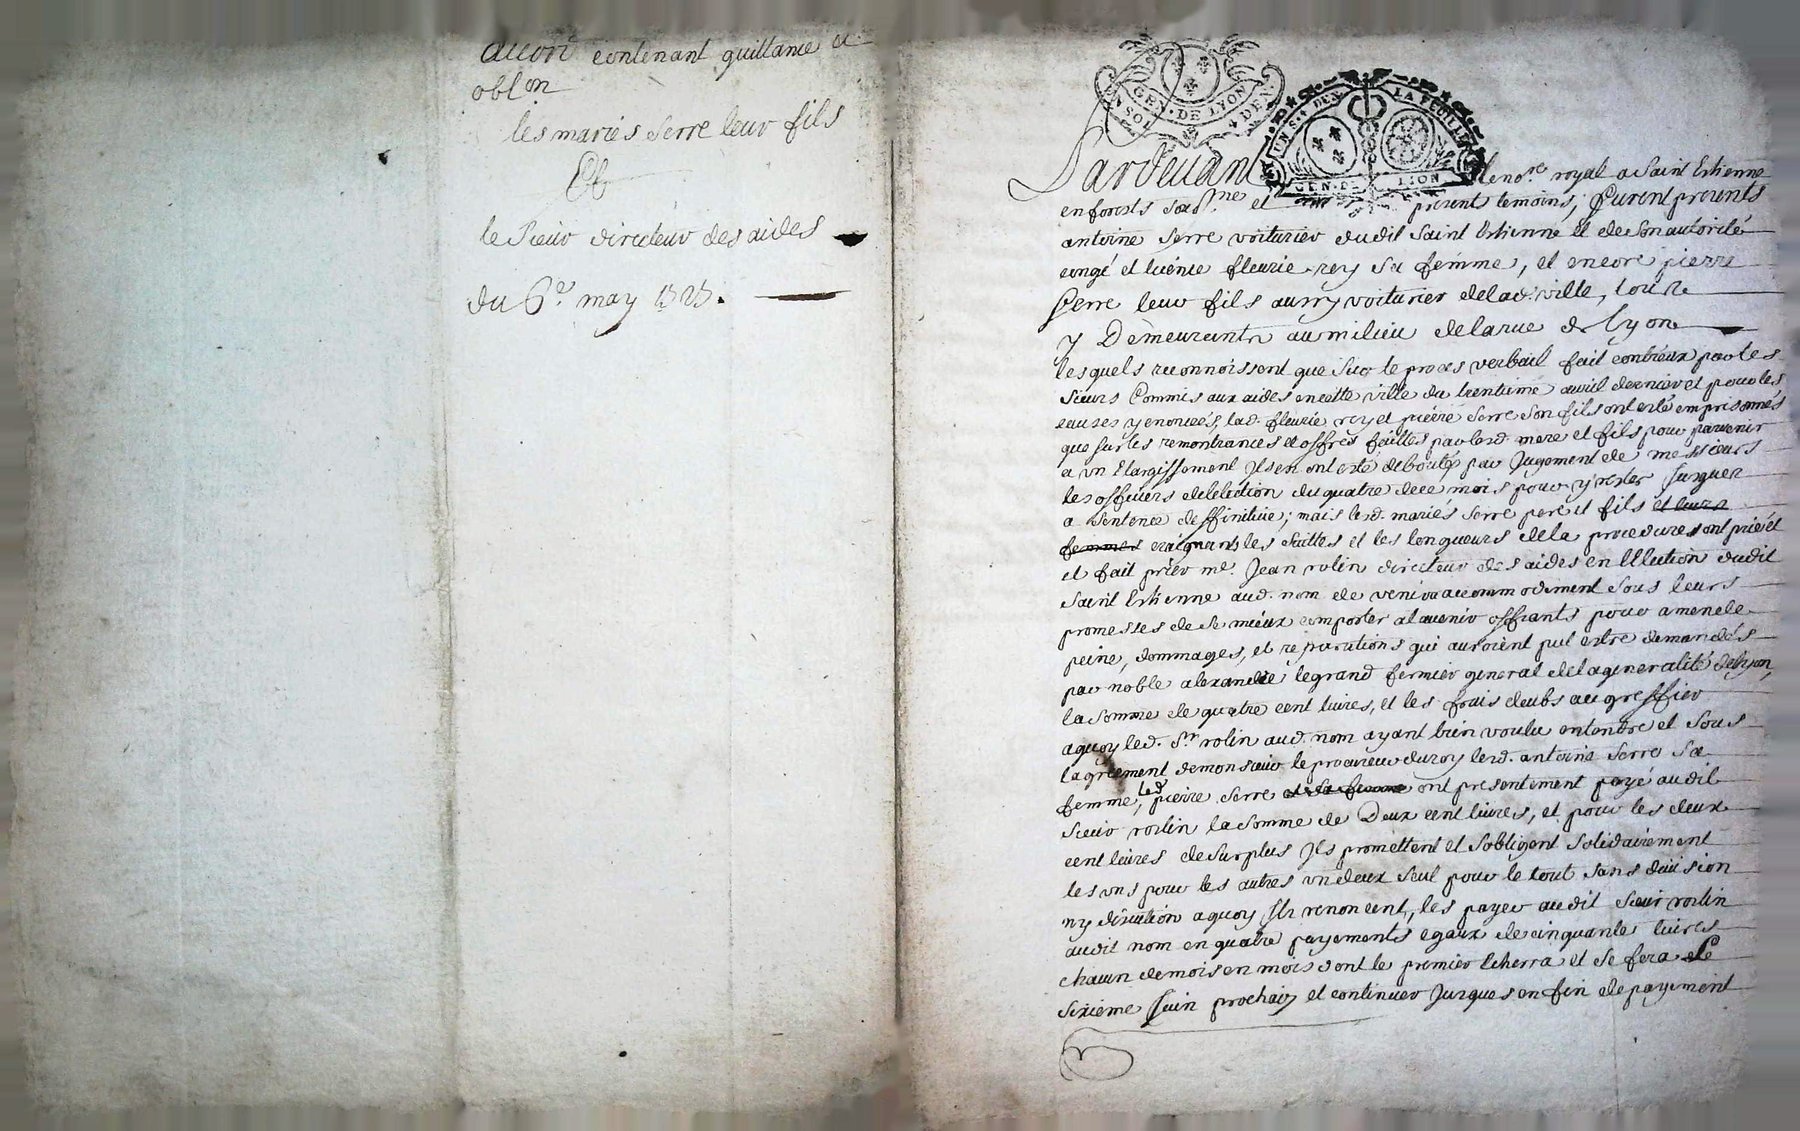 accord contenant quittance et
oblon
les mariés Serre leur fils
Et
le Sieur directeur des aides
du 6e. may
GEN. DE LYON
UN SOL DEN.
UN S. DEN. LA FEUILLE
GEN. DE LYON
Pardevant le nore royal a Saint Estienne
en forests sousne. et presents temoins; furent presents
antoine Serre voiturier dudit Saint Estienne et de Son autorité
congé et licence fleurie rey Sa femme, et encore pierre
Serre leur fils aussy voiturier de lad. ville, tous
y Demeurants au milieu de la rue de Lyon
lesquels reconnoissent que Sur le proces verbail fait contreux par les
Sieurs Commis aux aides en cette ville du trentieme avril dernier et pour les
causes y enoncées, lad. fleurie rey et pierre Serre Son fils ont esté emprisonnés
que sur les remontrances et offres faittes par lesd. mere et fils pour parvenir
a un Elargissement Ils en ont esté deboutés par Jugement de messieurs
les officiers delelection du quatre de ce mois pour y rester Jusques
a Sentence deffinitive; mais lesd. mariés Serre pere et fils et leurs
femmes craignants les Suittes et les longueurs de la procedure sont prié et
et fait prier me. Jean rolin directeur des aides en lElection dudit
Saint Estienne aud. nom de venir a accommodement Sous leurs
promesses de Se mieux comporter a lavenir offrants pour amende
peine, dommages, et reparations qui auroient put estre demandés
par noble alexandre legrand fermier general de la generalité de lyon,
la Somme de quatre cent livres, et les frais deubs au greffier
a quoy led. Sr. rolin aud. nom ayant bien voulu entendre et Sous
lagréement de monsieur le procureur du roy lesd. antoine Serre Sa
femme, led. pierre Serre et Sa femme ont presentement payé audit
Sieur rolin la Somme de Deux cent livres, et pour les deux
cent livres de Surplus Ils promettent et Sobligent Solidairement
les uns pour les autres un deux Seul pour le tout Sans division
ny discution a quoy Ils renoncent, les payer audit Sieur rolin
audit nom en quatre payements egaux de cinquante livres
chacun de mois en mois dont le premier Echerra et Se fera le
Sixieme Juin prochain et continuer Jusques en fin de payement